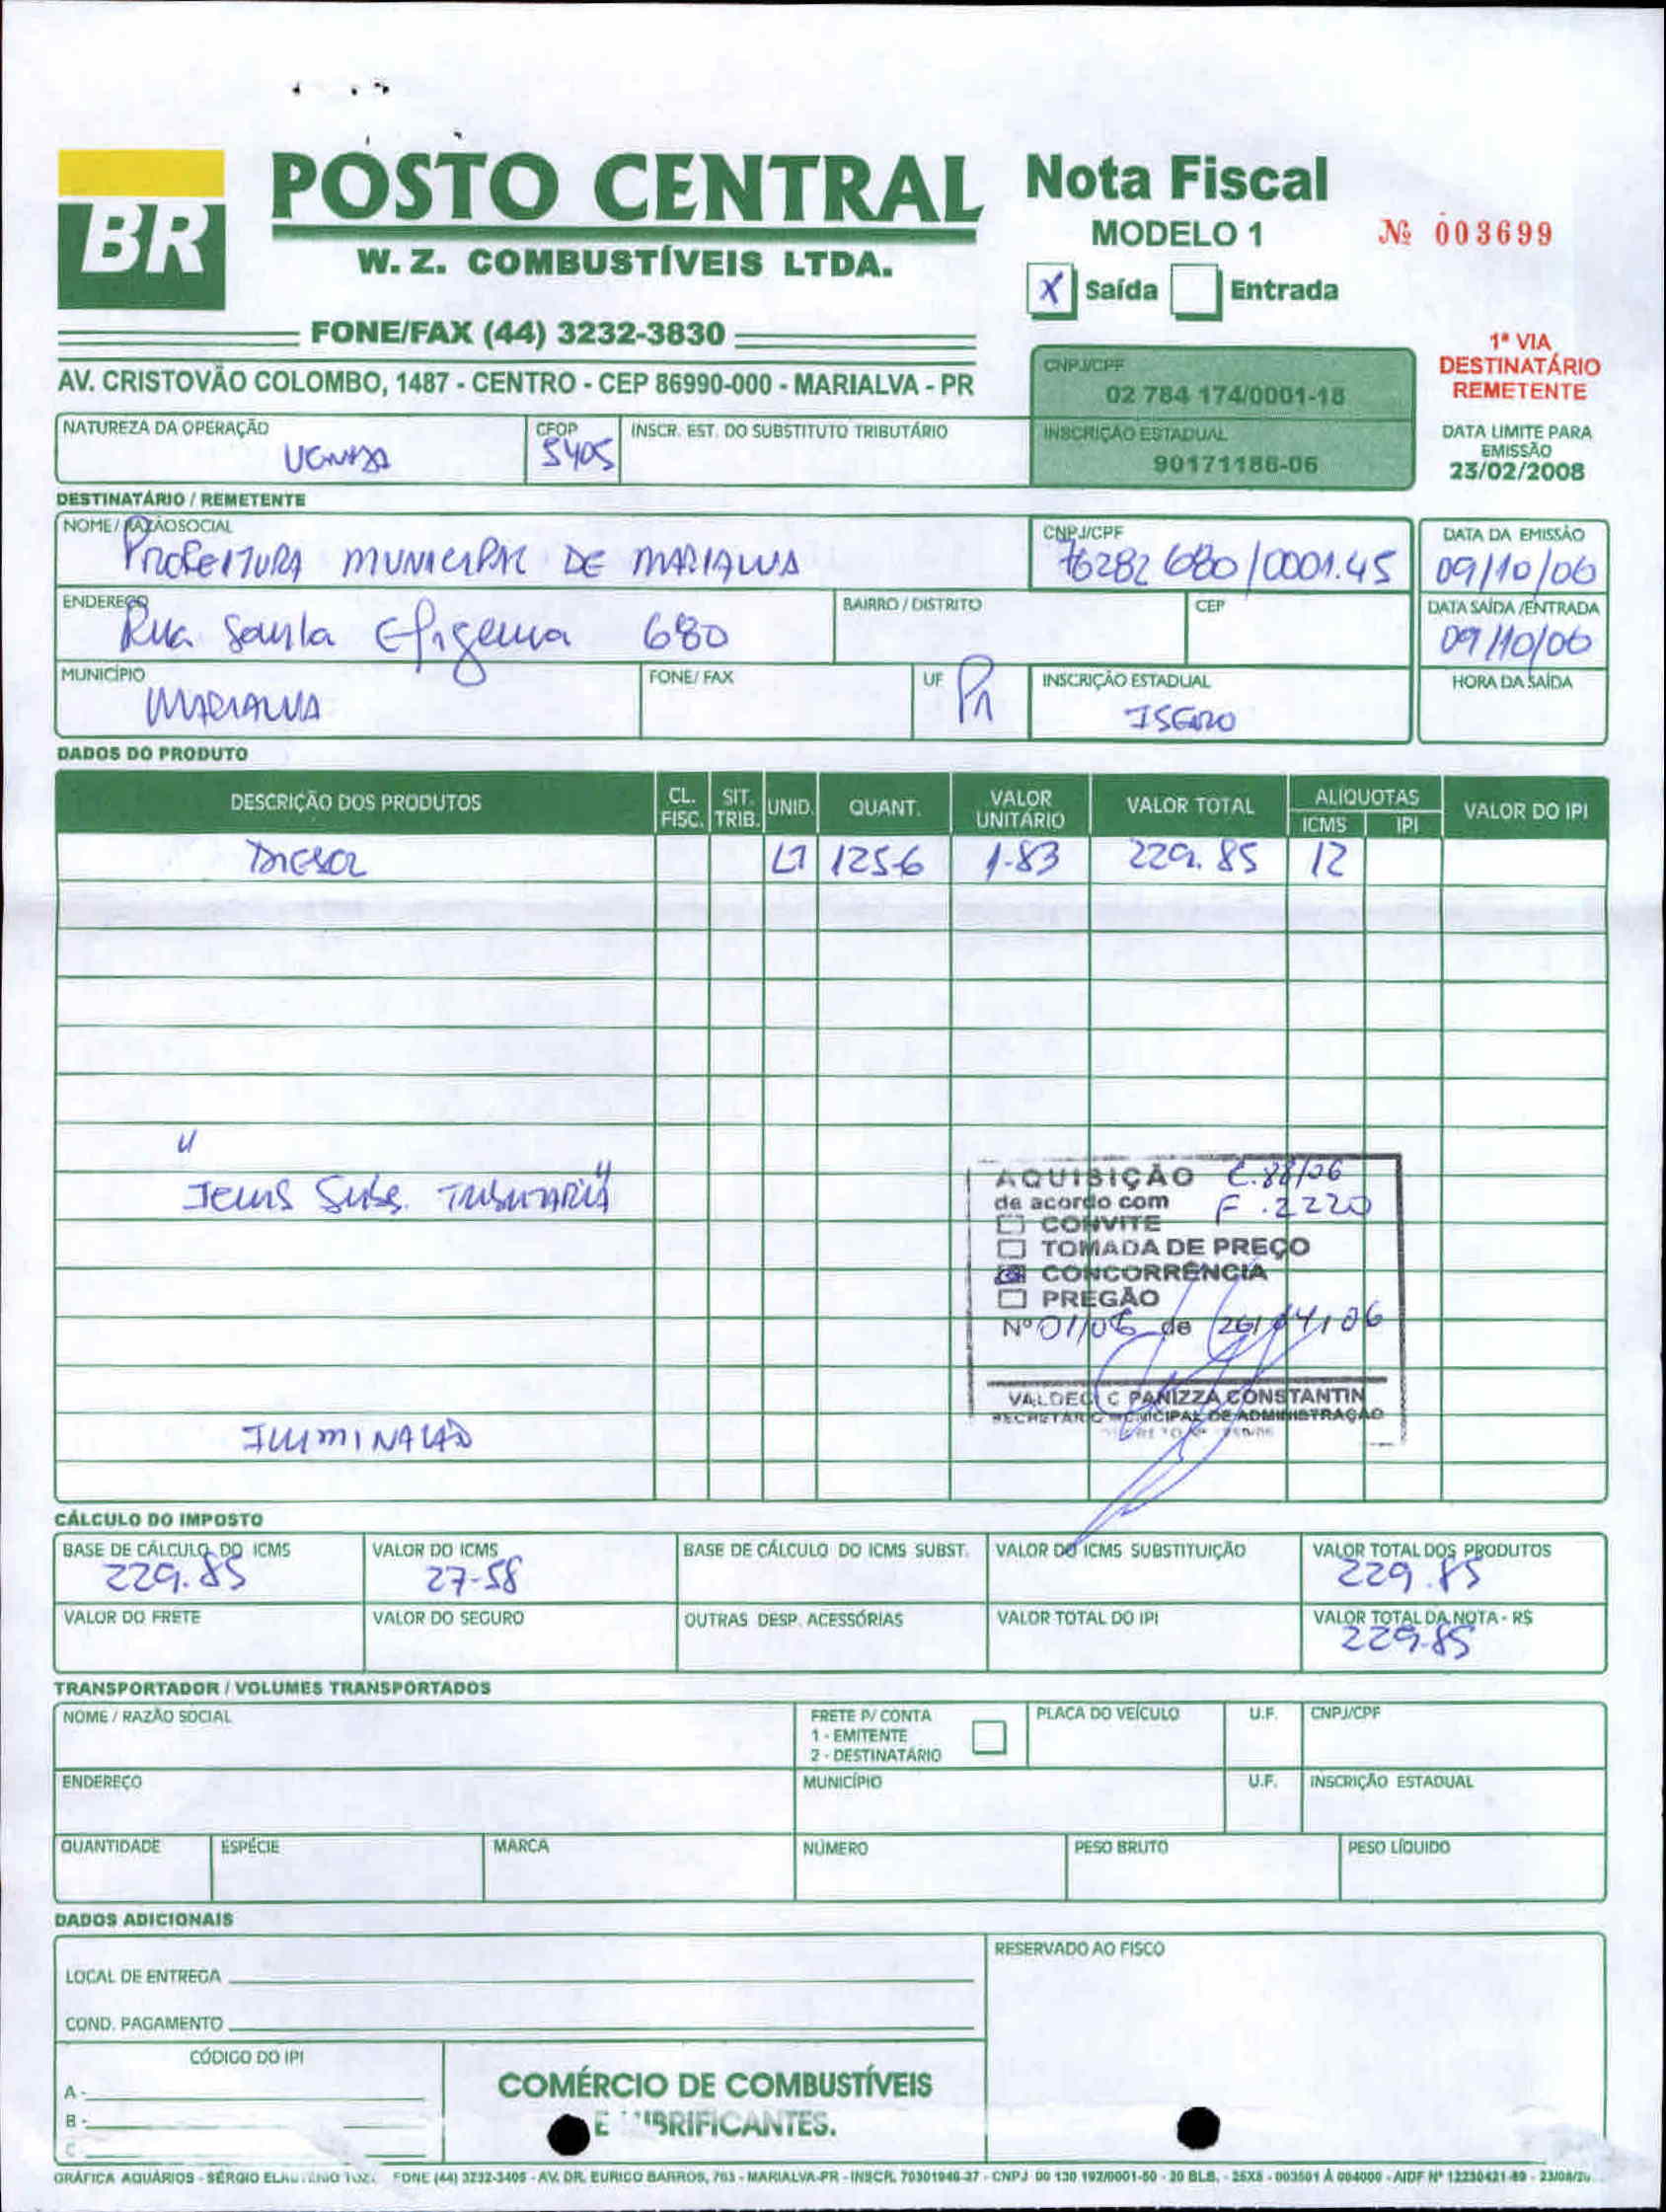 BR
POSTO CENTRAL
W. Z. COMBUSTÍVEIS LTDA.
FONE/FAX (44) 3232-3830
AV. CRISTOVÃO COLOMBO, 1487 - CENTRO - CEP 86990-000 - MARIALVA - PR
Nota Fiscal
MODELO 1
Nº 003699
X Saída Entrada
1ª VIA
DESTINATÁRIO
REMETENTE
CNPJ/CPF
02 784 174/0001-18
INSCRIÇÃO ESTADUAL
90171186-06
DATA LIMITE PARA
EMISSÃO
23/02/2008
NATUREZA DA OPERAÇÃO
VENDA
CFOP
5405
INSCR. EST. DO SUBSTITUTO TRIBUTÁRIO
DESTINATÁRIO / REMETENTE
NOME / RAZÃO SOCIAL
PREFEITURA MUNICIPAL DE MARIALVA
CNPJ/CPF
76282680/0001.45
DATA DA EMISSÃO
09/10/06
ENDEREÇO
Rua Santa Efigenia 680
BAIRRO / DISTRITO
CEP
DATA SAÍDA /ENTRADA
09/10/06
MUNICÍPIO
MARIALVA
FONE/ FAX
UF
PR
INSCRIÇÃO ESTADUAL
ISENTO
HORA DA SAÍDA
DADOS DO PRODUTO
DESCRIÇÃO DOS PRODUTOS CL. FISC. SIT. TRIB. UNID. QUANT. VALOR UNITÁRIO VALOR TOTAL ALÍQUOTAS ICMS IPI VALOR DO IPI
DIESEL LT 125,6 1-83 229.85 12
"ICMS Subs. TRIBUTARIA"
AQUISIÇÃO C.88/06
de acordo com F.2220
CONVITE
TOMADA DE PREÇO
CONCORRÊNCIA
PREGÃO
Nº 01/06 de 26/04/06
VALDECI C PANIZZA CONSTANTIN
SECRETÁRIO MUNICIPAL DE ADMINISTRAÇÃO
ILUMINAÇÃO
CÁLCULO DO IMPOSTO
BASE DE CÁLCULO DO ICMS
229.85
VALOR DO ICMS
27-58
BASE DE CÁLCULO DO ICMS SUBST.
VALOR DO ICMS SUBSTITUIÇÃO
VALOR TOTAL DOS PRODUTOS
229.85
VALOR DO FRETE
VALOR DO SEGURO
OUTRAS DESP. ACESSÓRIAS
VALOR TOTAL DO IPI
VALOR TOTAL DA NOTA - R$
229-85
TRANSPORTADOR / VOLUMES TRANSPORTADOS
NOME / RAZÃO SOCIAL
FRETE P/ CONTA
1 - EMITENTE
2 - DESTINATÁRIO
PLACA DO VEÍCULO
U.F.
CNPJ/CPF
ENDEREÇO
MUNICÍPIO
U.F.
INSCRIÇÃO ESTADUAL
QUANTIDADE
ESPÉCIE
MARCA
NÚMERO
PESO BRUTO
PESO LÍQUIDO
DADOS ADICIONAIS
LOCAL DE ENTREGA
COND. PAGAMENTO
RESERVADO AO FISCO
CÓDIGO DO IPI
A -
B -
C
COMÉRCIO DE COMBUSTÍVEIS
E LUBRIFICANTES.
GRÁFICA AQUÁRIOS - SÉRGIO FONE (44) 3232-3405 - AV. DR. EURICO BARROS, 763 - MARIALVA-PR - INSCR. 70301946-27 - CNPJ 00 130 192/0001-50 - 20 BLS. - 25X5 - 003501 À 004000 - AIDF Nº 12230421-89